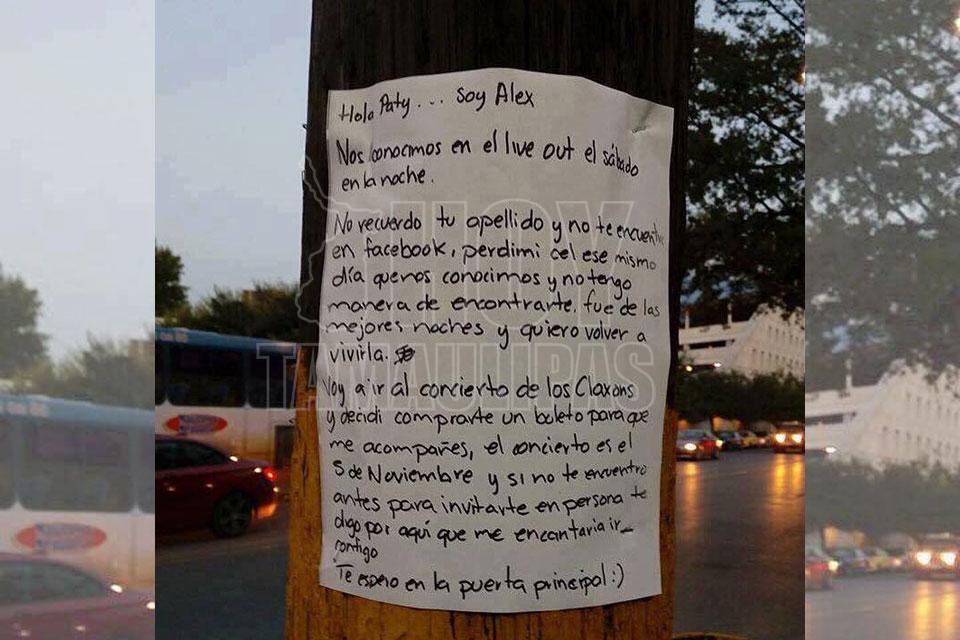 Hola Paty... Soy Alex
Nos conocimos en el live out el sábado
en la noche.
No recuerdo tu apellido y no te encuentro
en facebook, perdimi cel ese mismo
día quenos conocimos y no tengo
manera de encontrarte, fue de las
mejores noches y quiero volver a
vivirla.
Voy a ir al concierto de los Claxons
y decidí comprarte un boleto para que
me acompañes, el concierto es el
5 de Noviembre y si no te encuentro
antes para invitarte en persona te
digo por aquí que me encantaría ir
contigo
Te espero en la puerta principal :)
HOY
TAMAULIPAS